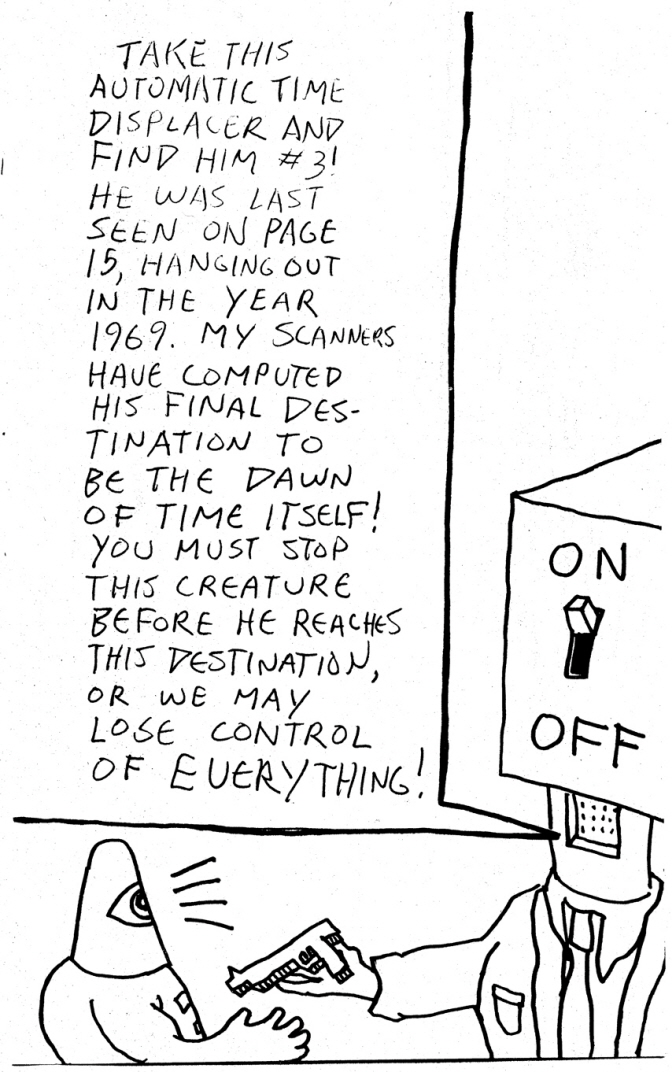 TAKE THIS
AUTOMATIC TIME
DISPLACER AND
FIND HIM #3!
HE WAS LAST
SEEN ON PAGE
15, HANGING OUT
IN THE YEAR
1969. MY SCANNERS
HAVE COMPUTED
HIS FINAL DES-
TINATION TO
BE THE DAWN
OF TIME ITSELF!
YOU MUST STOP
THIS CREATURE
BEFORE HE REACHES
THIS DESTINATION,
OR WE MAY
LOSE CONTROL
OF EVERYTHING!
ON
OFF